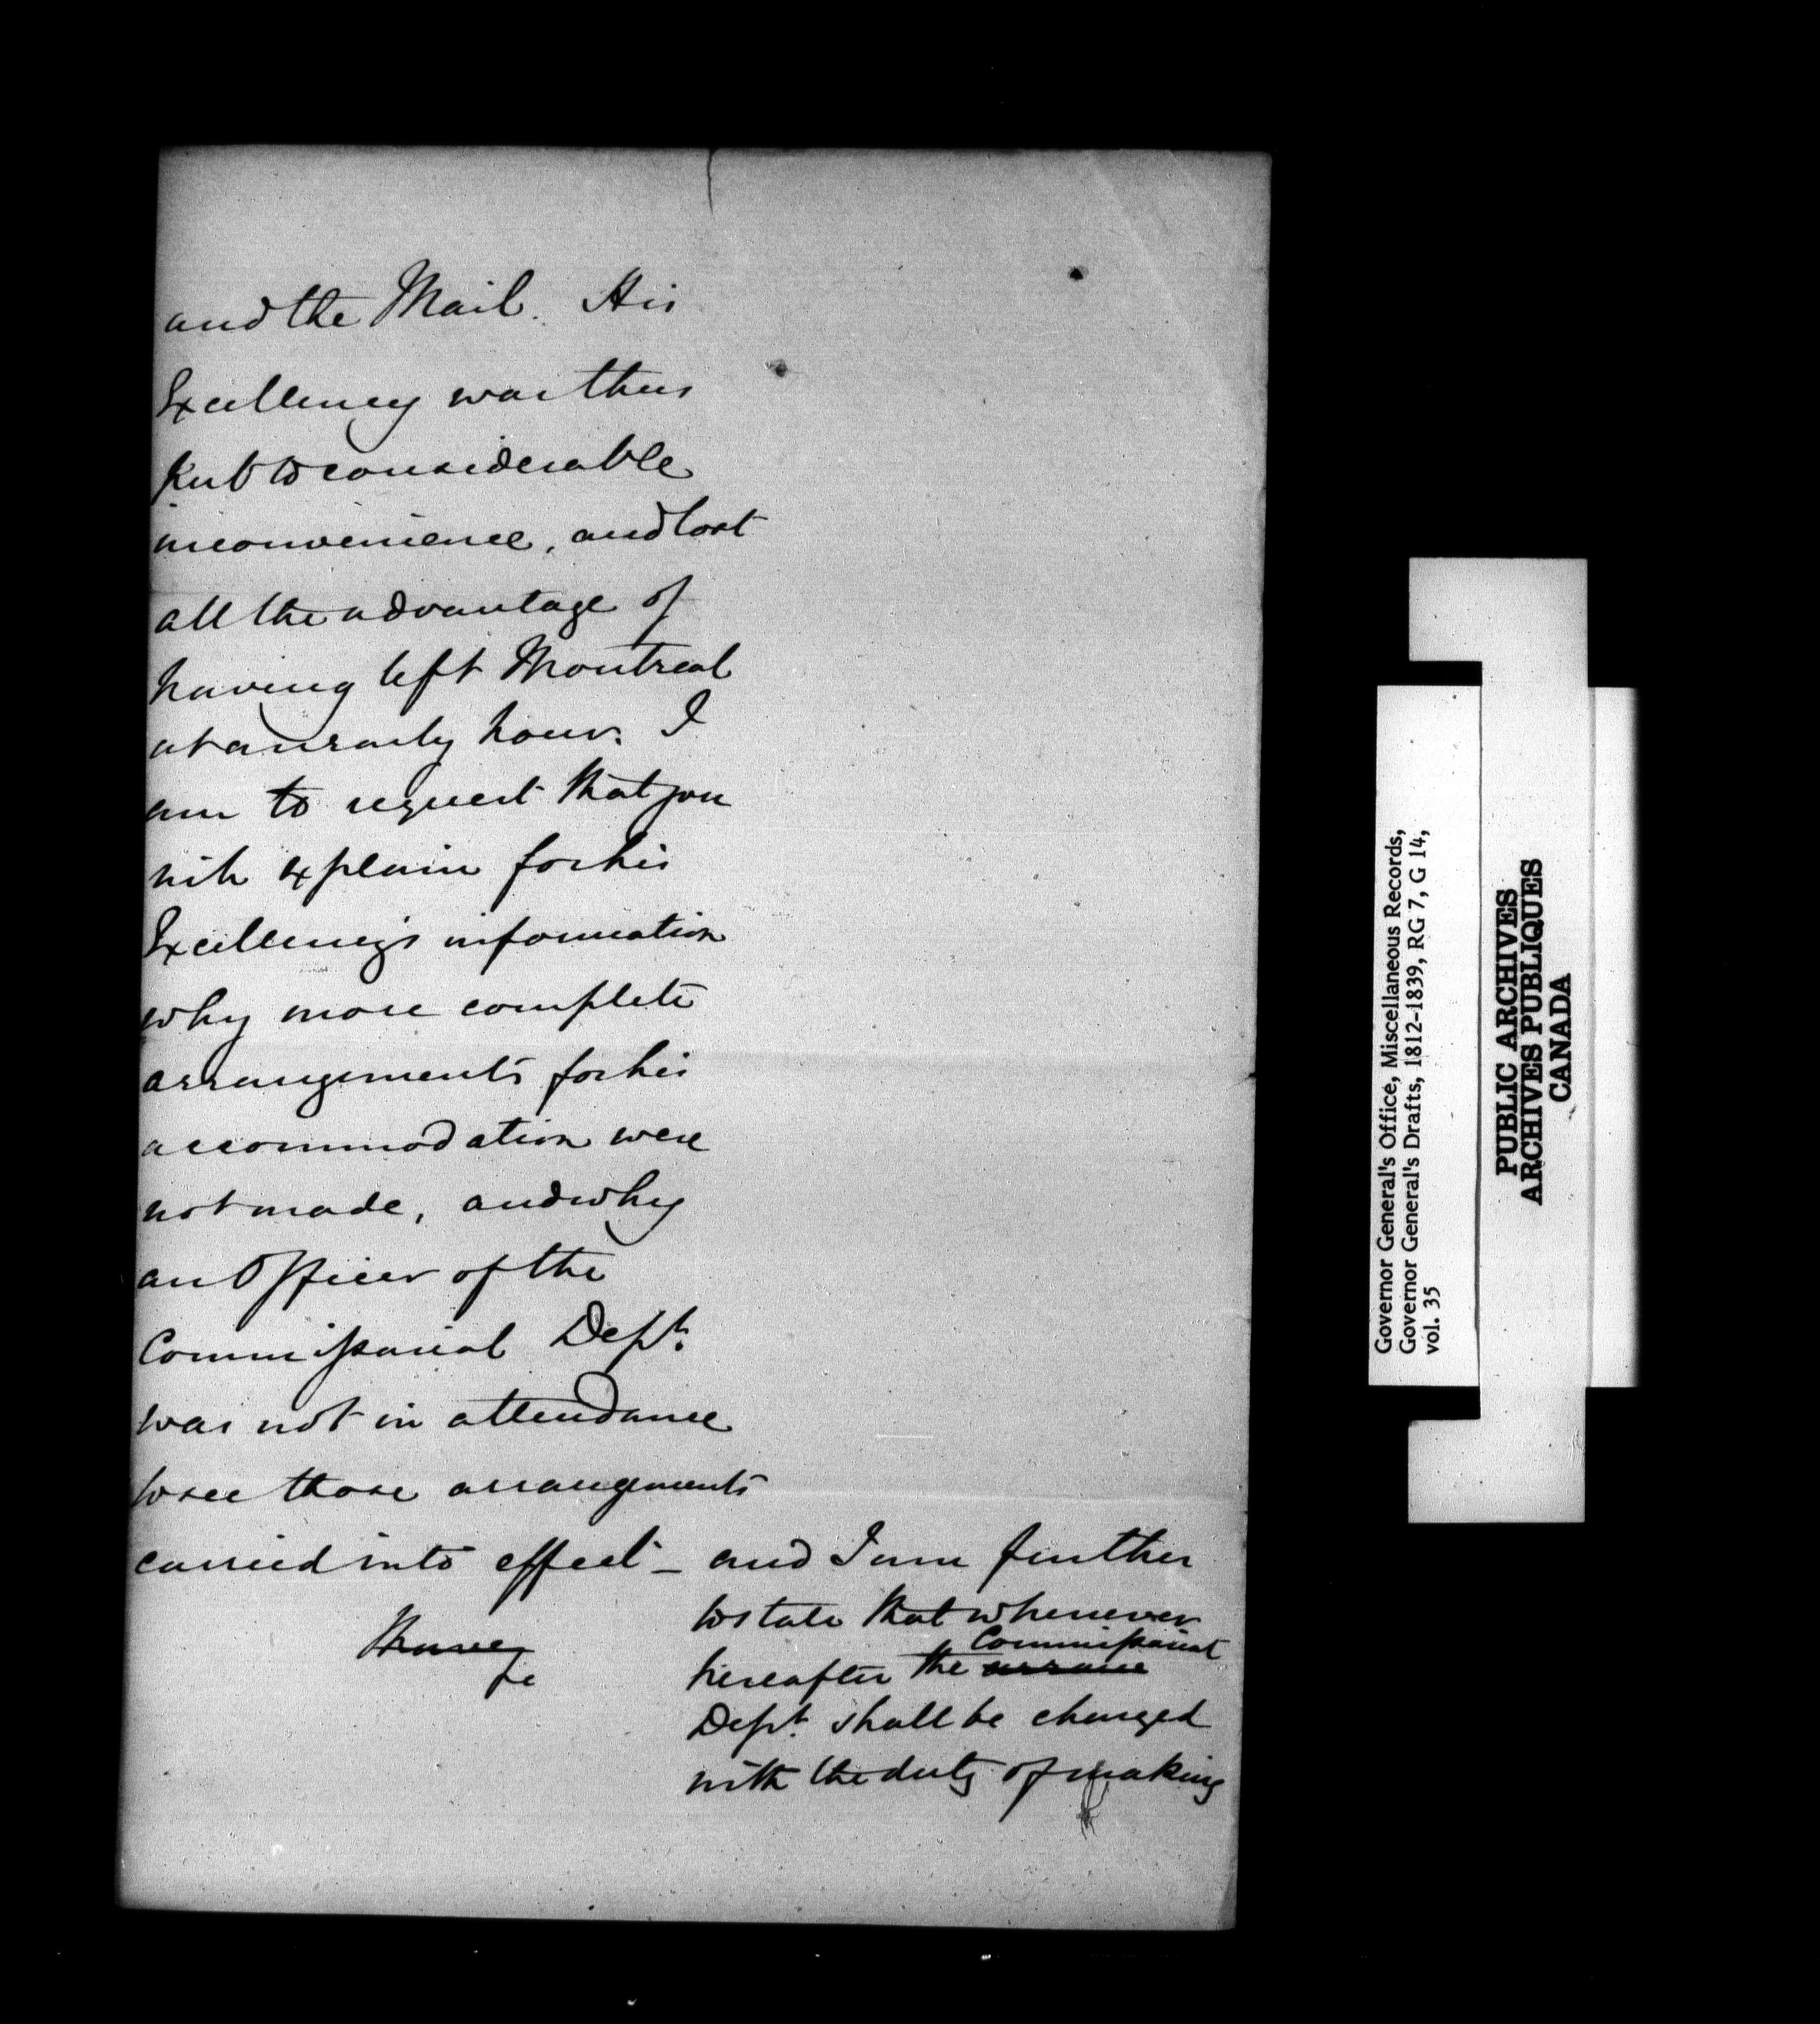 and the Mail. His
Excellency was thus
put to considerable
inconvenience, and lost
all the advantage of
having left Montreal
at an early hour. I
am to request that you
will explain for his
Excellency's information
why more complete
arrangements for his
accommodation were
not made, and why
an Officer of the
Commissariat Dept.
was not in attendance
to see those arrangements
carried into effect – and I am further
to state that whenever
Commissariat
hereafter the
Dept. shall be charged
with the duty of making
Governor General's Office, Miscellaneous Records,
Governor General's Drafts, 1812-1839, RG 7, G 14,
vol. 35
PUBLIC ARCHIVES
ARCHIVES PUBLIQUES
CANADA